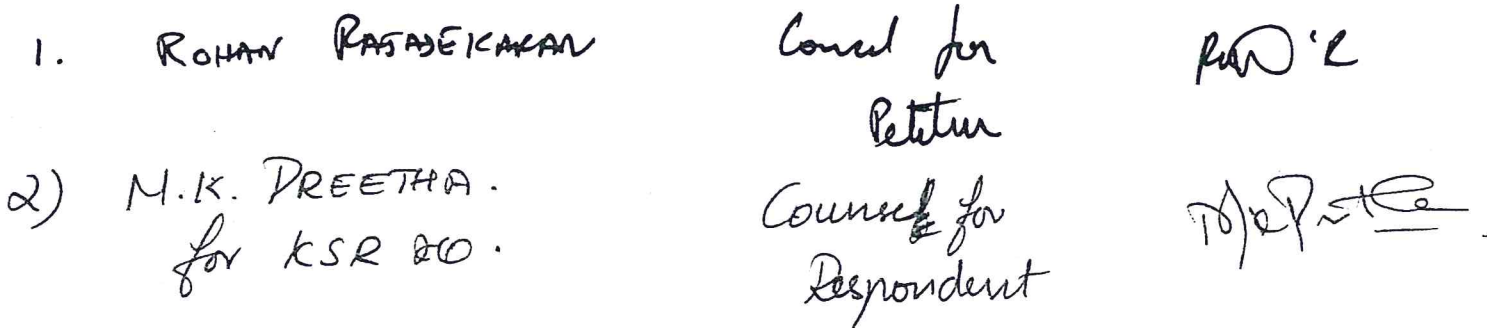 1. ROHAN RAJASEKARAN Counsel for
Petitioner
2) M.K. PREETHA. Counsel for
for KSR &CO. Respondent